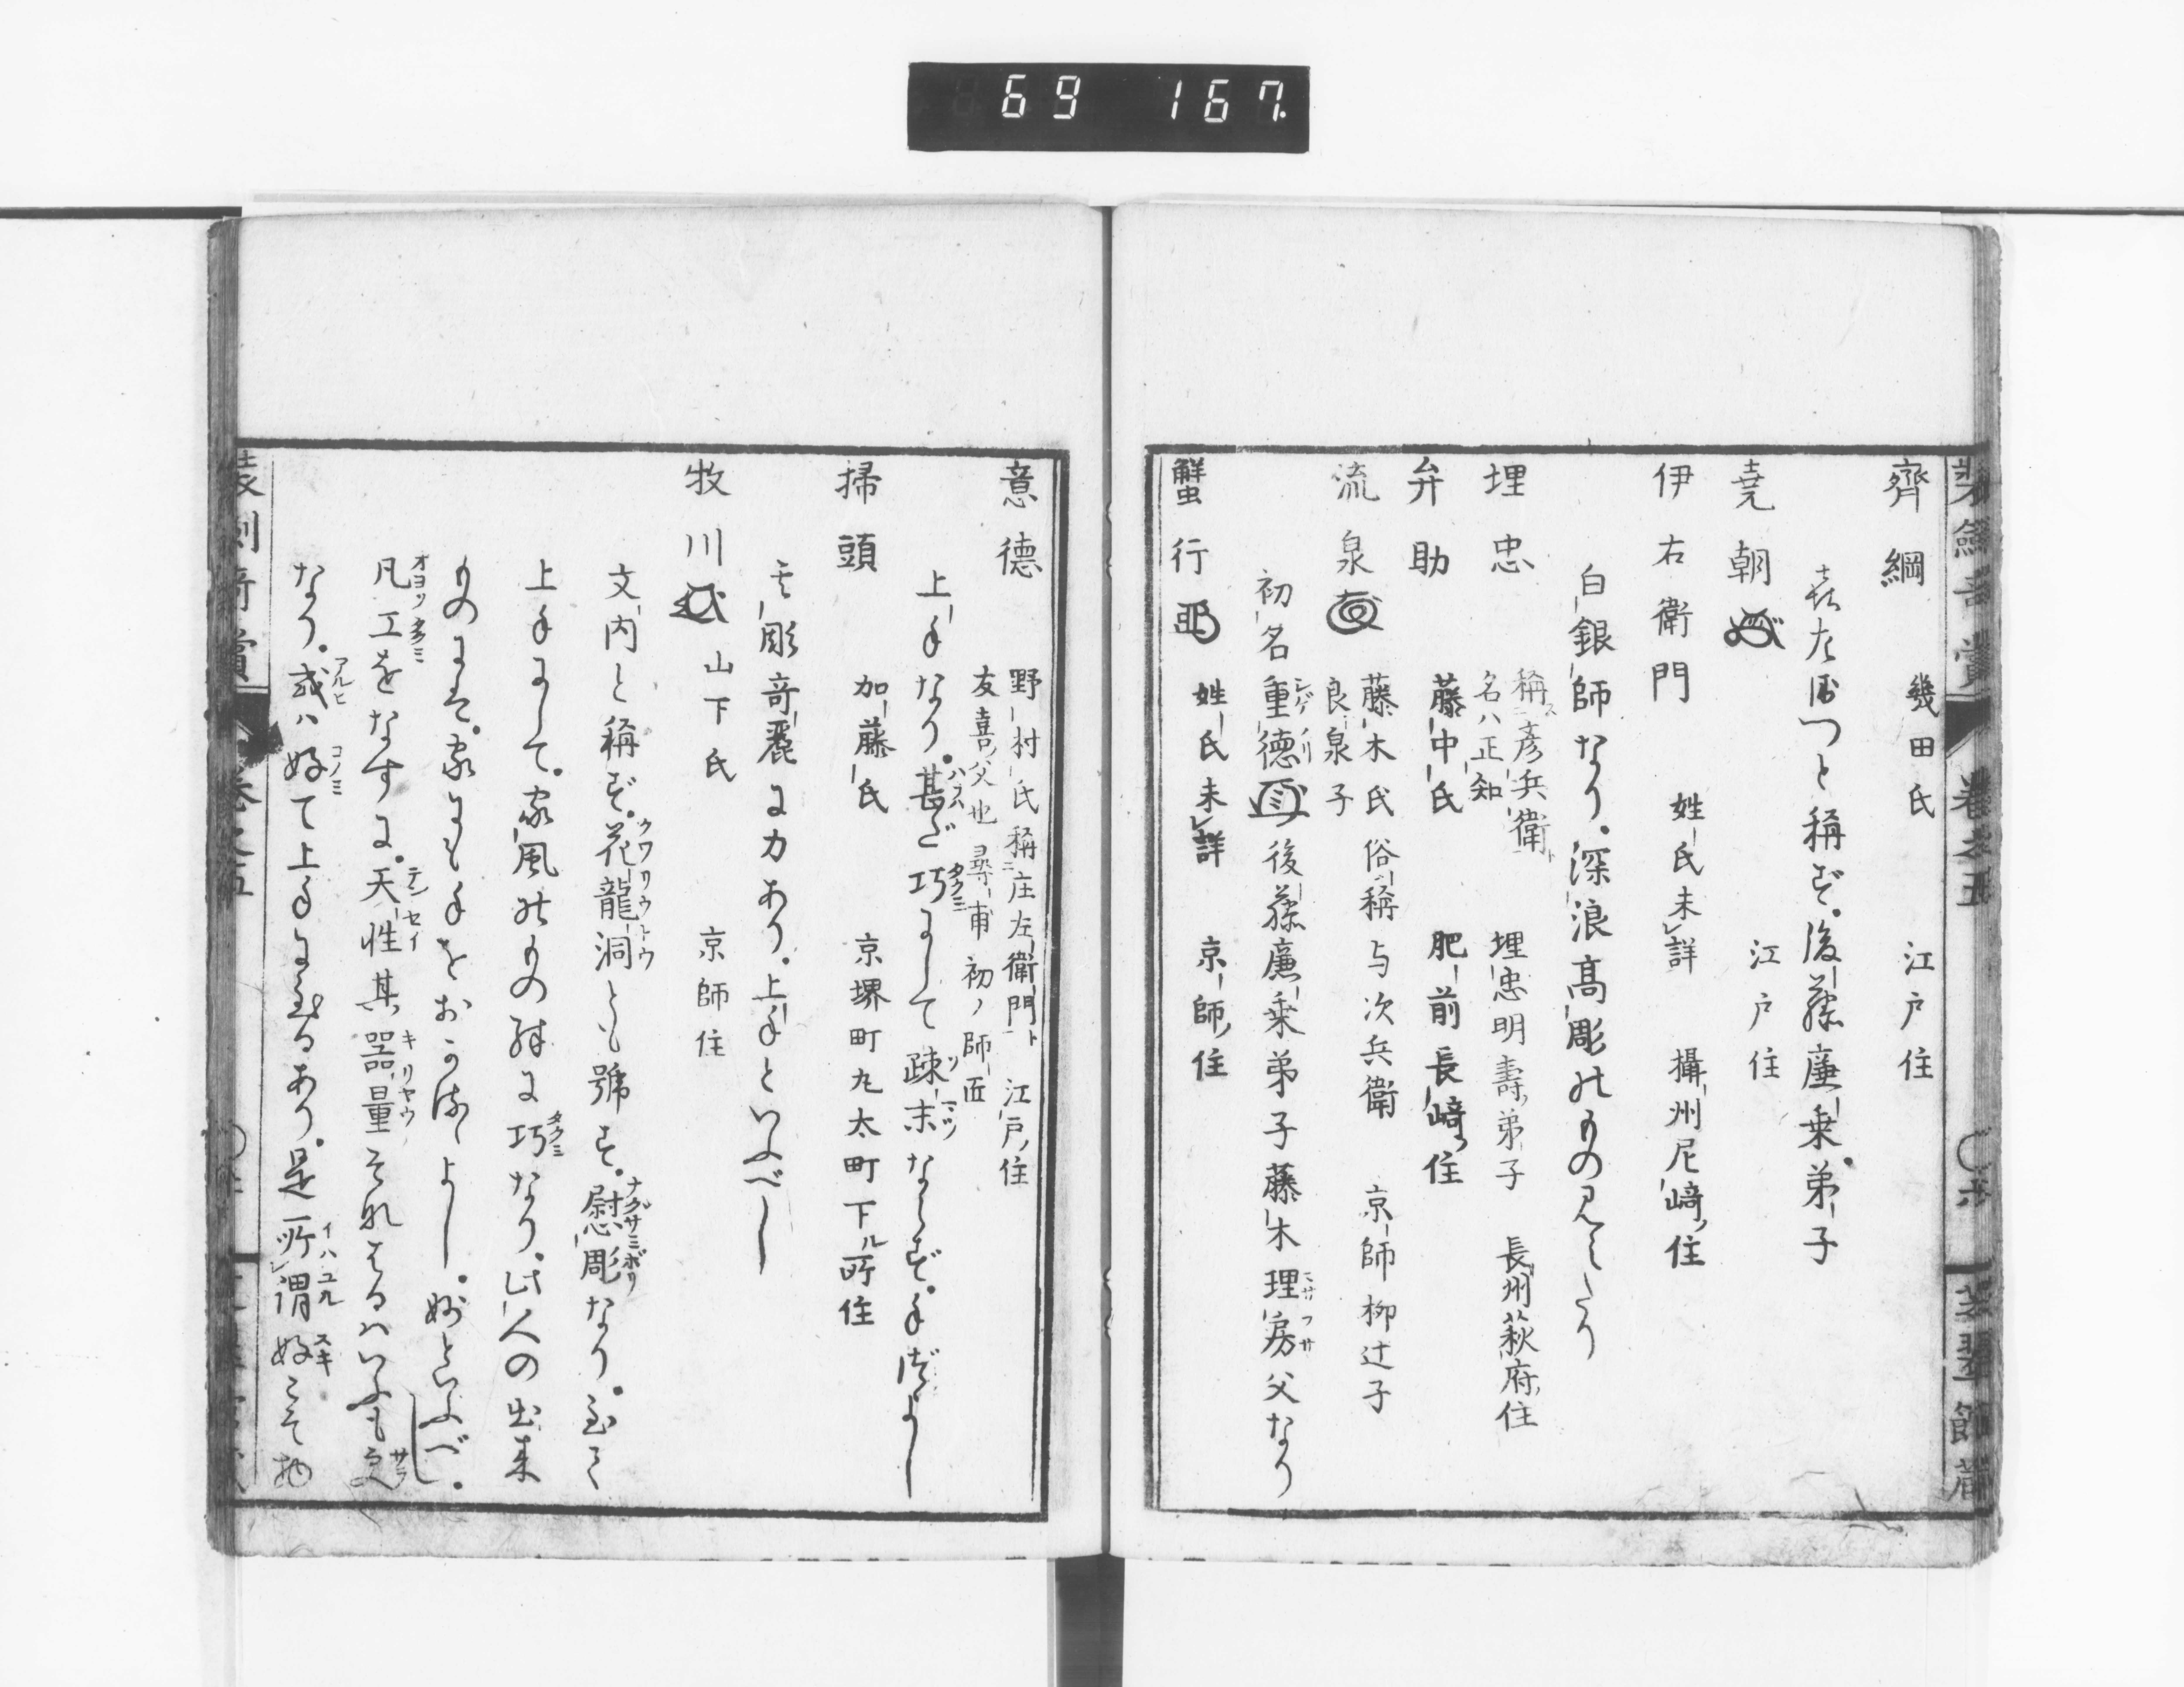 69 167
齊綱 幾田氏 江戸住
㐂左衛つと称ず。後藤廉乗弟子
尭朝 江戸住
伊右衛門 姓氏未詳 攝州尼﨑住
白銀師なり。深浪高彫のもの見へたり
埋忠 稱彦兵衛 埋忠明壽弟子 長州萩府住
名ハ正知
弁助 藤中氏 肥前長﨑住
流泉 藤木氏 俗稱与次兵衛 京師柳辻子
良泉子
初名重徳 後藤廉乗弟子藤木理房父なり
蟹行 姓氏未詳 京師住
意德 野村氏稱庄左衛門 江戸住
友喜父也 尋甫初ノ師匠
上手なり。甚だ巧にして疎末ならず。手際よし
掃頭 加藤氏 京堺町丸太町下ル所住
毛彫奇麗に力あり。上手といふべし
牧川 山下氏 京師住
文内と稱ず。花龍洞とも號す。慰彫なり。至て
上手にして。家風のもの殊に巧なり。此人の出来
ものにて。家にも手をおかず よし。妙といふべし。
凡工をなすに。天性其器量それなるハいふも更
なり。或ハ好て上手に至るあり。是所謂好こそ物
裝劍竒賞 卷之五